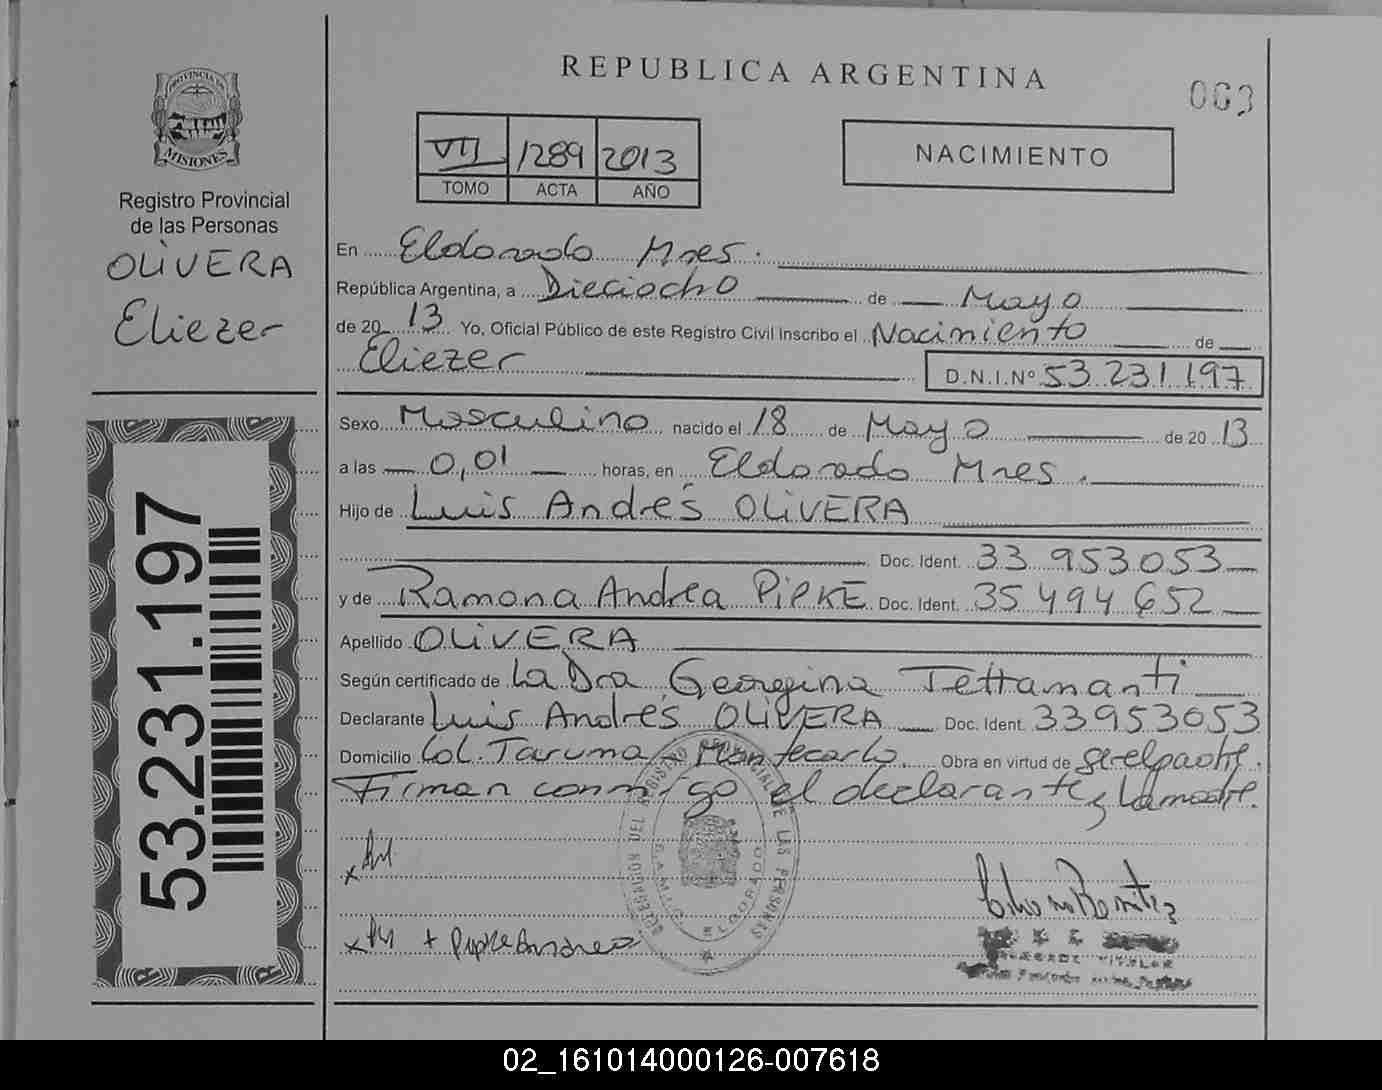 REPUBLICA ARGENTINA
PROVINCIA DE
MISIONES
Registro Provincial
de las Personas
OLIVERA
Eliezer
53.231.197
VII 1289 2013
TOMO ACTA AÑO
NACIMIENTO
En Eldorado Mnes.
República Argentina, a Dieciocho de Mayo
de 20 13 Yo, Oficial Público de este Registro Civil Inscribo el Nacimiento de
Eliezer
D.N.I.Nº 53.231.197
Sexo Masculino nacido el 18 de Mayo de 20 13
a las 0,01 horas, en Eldorado Mnes.
Hijo de Luis Andrés OLIVERA
Doc. Ident. 33 953053
y de Ramona Andrea PIPKE Doc. Ident. 35 494 652
Apellido OLIVERA
Según certificado de La Dra Georgina Tettamanti
Declarante Luis Andrés OLIVERA Doc. Ident. 33953053
Domicilio Col. Taruma Montecarlo Obra en virtud de ser el padre.
Firman conmigo el declarante y la madre.
DELEGACION DEL REGISTRO PROVINCIAL DE LAS PERSONAS
ELDORADO
x
x + Pipke Andrea
TITULAR
02_161014000126-007618